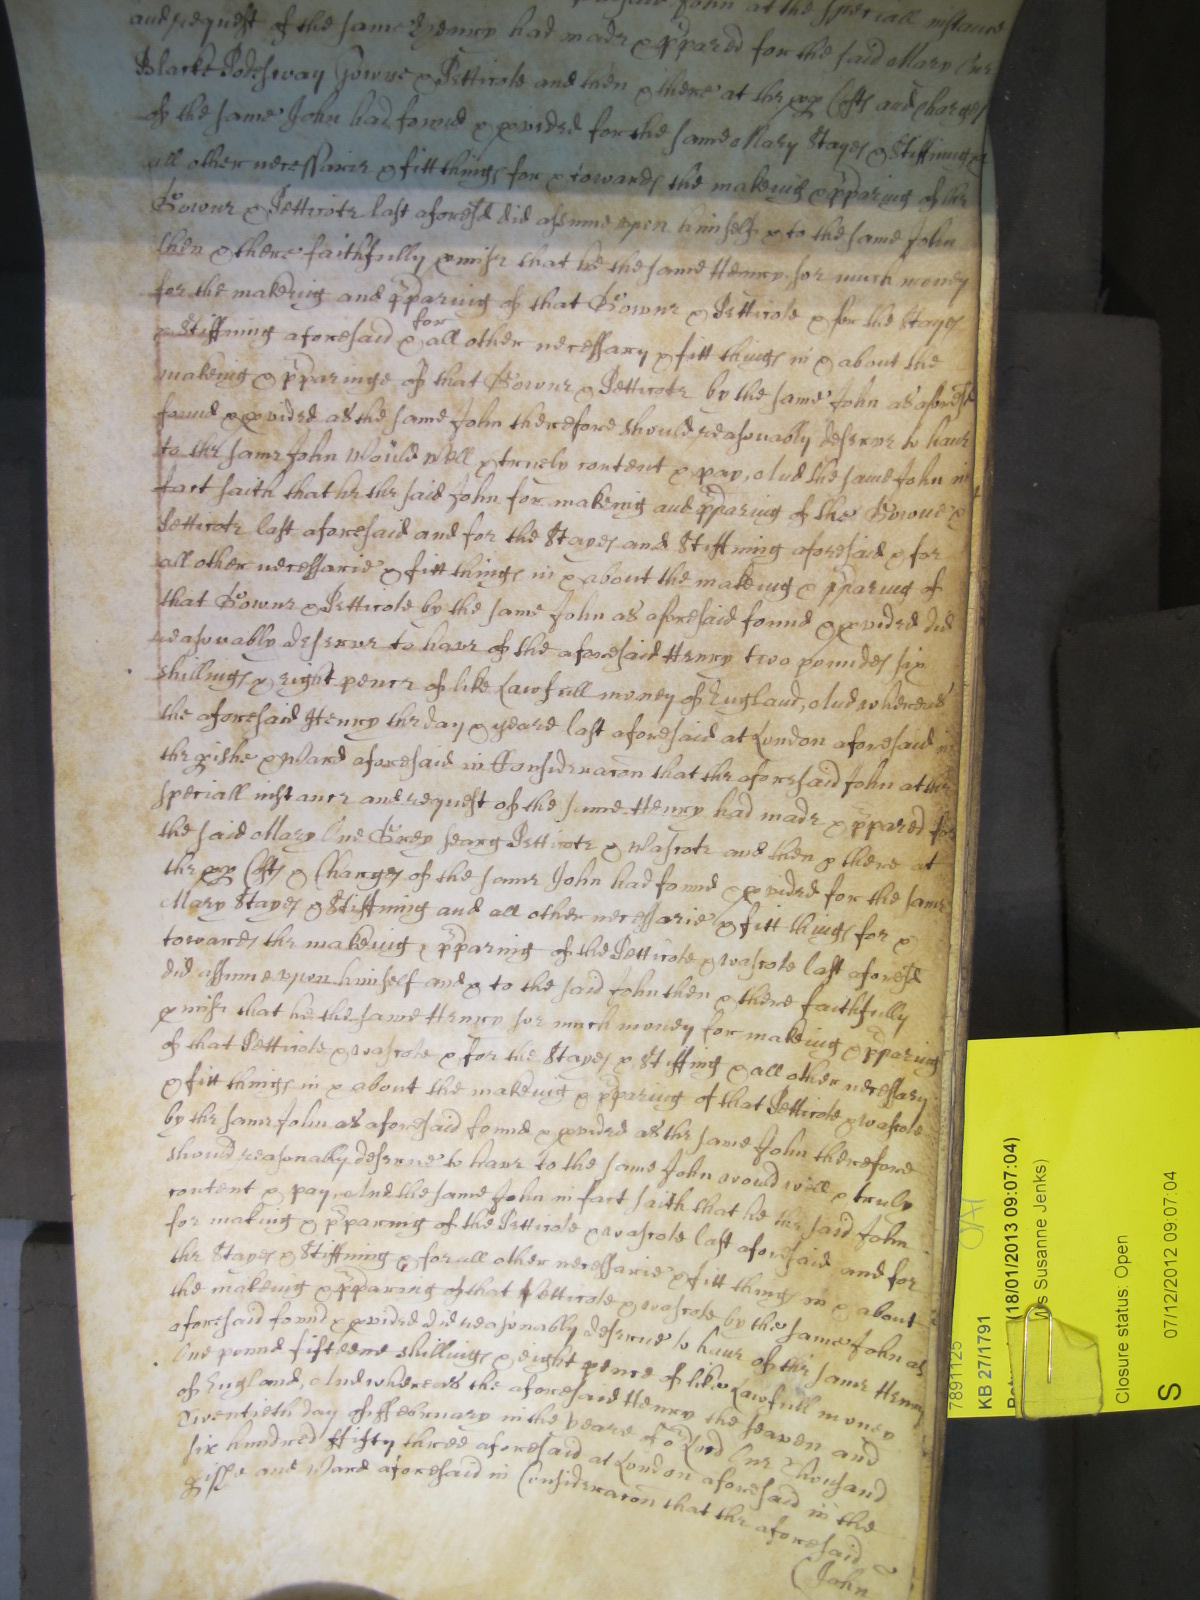 John at the speciall instance
and request of the same Henry had made & ppared for the said Mary One
Blacke Podesway Gowne & Petticote and then & there at the pp Costs and Charges
of the same John had found & pvided for the same Mary Stayes & Stiffning &
all other necessaries & fitt things for & towards the makeing & pparing of the
Gowne & Petticote last aforesd did assume upon himself & to the same John
then & there faithfully pmise that he the same Henry soe much money
for the makeing and pparing of that Gowne & Petticote & for the Stayes
& Stiffning aforesaid & for all other necessary & fitt things in & about the
makeing & pparinge of that Gowne & Petticote by the same John as aforesd
found & pvided as the same John therefore should reasonably deserve to have
to the same John Would Well & truely content & pay, And the same John in
fact saith that he the said John for makeing and pparing of the Gowne &
Petticote last aforesaid and for the Stayes and Stiffning aforesaid & for
all other necessarie & fitt things in & about the makeing & pparing of
that Gowne & Petticote by the same John as aforesaid found & pvided did
reasonably deserve to have of the aforesaid Henry two poundes six
shillings & eight pence of like Lawfull money of England, And whereas
the aforesaid Henry the day & yeare last aforesaid at London aforesaid in
the pishe & Ward aforesaid in Consideracon that the aforesaid John at the
speciall instance and request of the same Henry had made & ppared for
the said Mary One Grey Searg Petticote & Wascote and then & there at
the pp Costs & Charges of the same John had found & pvided for the same
Mary Stayes & Stiffning and all other necessarie & fitt things for &
towards the makeing & pparing of the Petticote & wascote last aforesd
did assume upon himself and & to the said John then & there faithfully
pmise that he the same Henry soe much money for makeing & pparing
of that Petticote & wascote & for the Stayes & Stiffing & all other necessary
& fitt things in & about the makeing & pparing of that Petticote & wascote
by the same John as aforesaid found & pvided as the same John therefore
should reasonably deserve to have to the same John would well & truly
content & pay, And the same John in fact saith that he the said John
for making & pparing of the Petticote & wascote last aforesaid and for
the Stayes & Stiffning & for all other necessarie & fitt things in & about
the makeing & pparing of that Petticote & wascote by the same John as
aforesaid found & pvided did reasonably deserve to have of the same Henry
One pound fifteene shillings & eight pence of like Lawfull money
of England, And whereas the aforesaid Henry the seaven and
Twentieth day of February in the yeare of or Lord One Thousand
six hundred ffifty three aforesaid at London aforesaid in the
pishe and Ward aforesaid in Consideracon that the aforesaid
John
7891125
KB 27/1791
(18/01/2013 09:07:04)
s Susanne Jenks)
Closure status: Open
S 07/12/2012 09:07:04